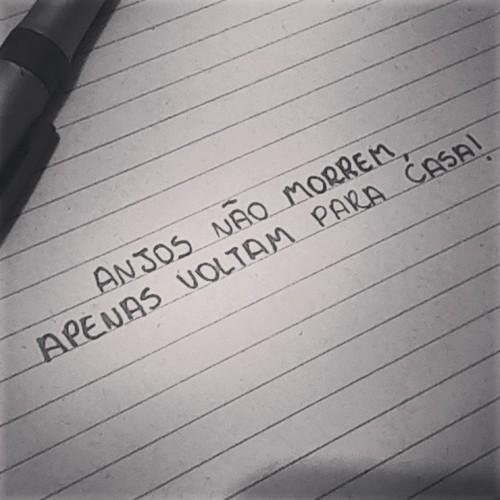 ANJOS NÃO MORREM,
APENAS VOLTAM PARA CASA!